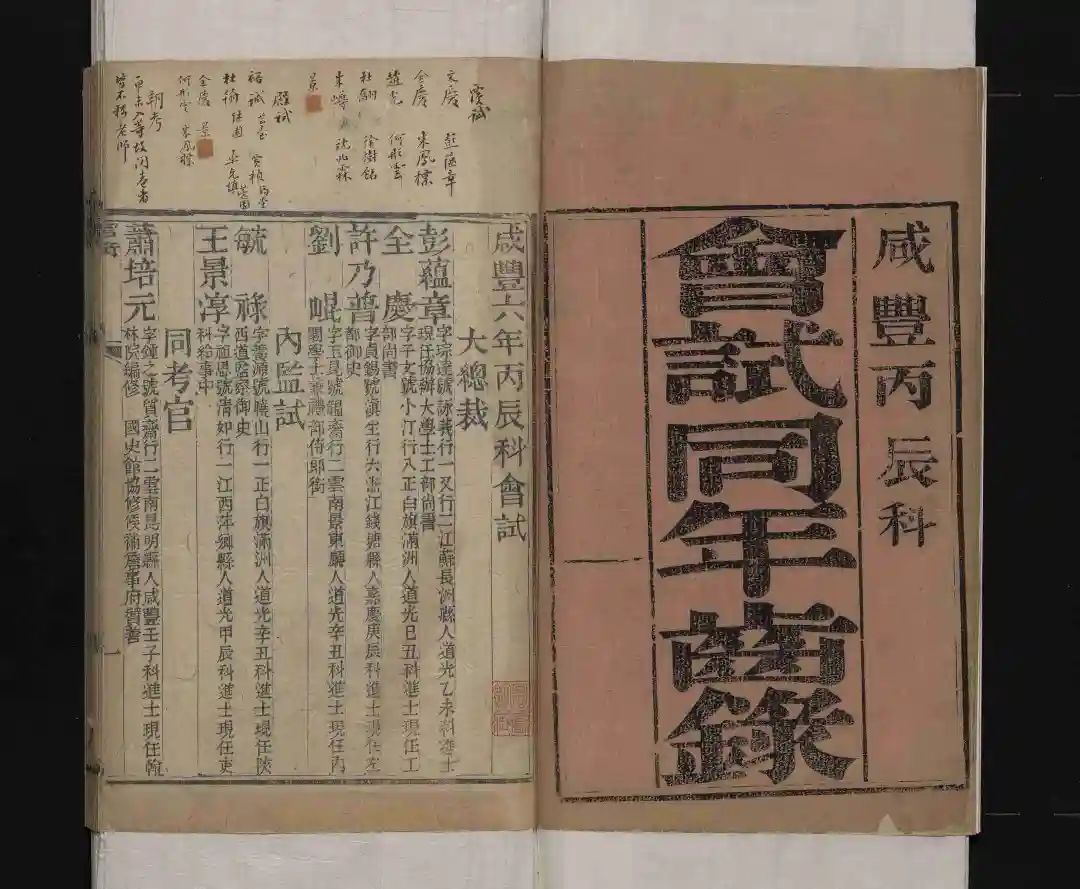 咸豐丙辰科
會試同年齒錄
覆試
文慶 彭蘊章
全慶 朱鳳標
趙光 何彤雲
杜翻 徐樹銘
朱嶟 沈兆霖
景
殿試
裕誠 賈楨
杜翰
全慶 景
何彤雲 朱鳳標
朝考
咸豐六年丙辰科會試
大總裁
彭蘊章字琮達號詠莪行一又行二江蘇長洲縣人道光乙未科進士
現任協辦大學士工部尚書
全慶字平文號小汀行八正白旗滿洲人道光己丑科進士現任工
部尚書
許乃普字貞錫號滇生行六浙江錢塘縣人嘉慶庚辰科進士現任左
都御史
劉崐字玉昆號韞齋行二雲南景東廳人道光辛丑科進士現任內
閣學士兼禮部侍郎銜
內監試
毓祿字養源號曉山行一正白旗滿洲人道光辛丑科進士現任陝
西道監察御史
王景淳字祖恩號清如行一江西萍鄉縣人道光甲辰科進士現任吏
科給事中
同考官
蕭培元字鍾之號質齋行二雲南昆明縣人咸豐壬子科進士現任翰
林院編修 國史館協修候補詹事府贊善